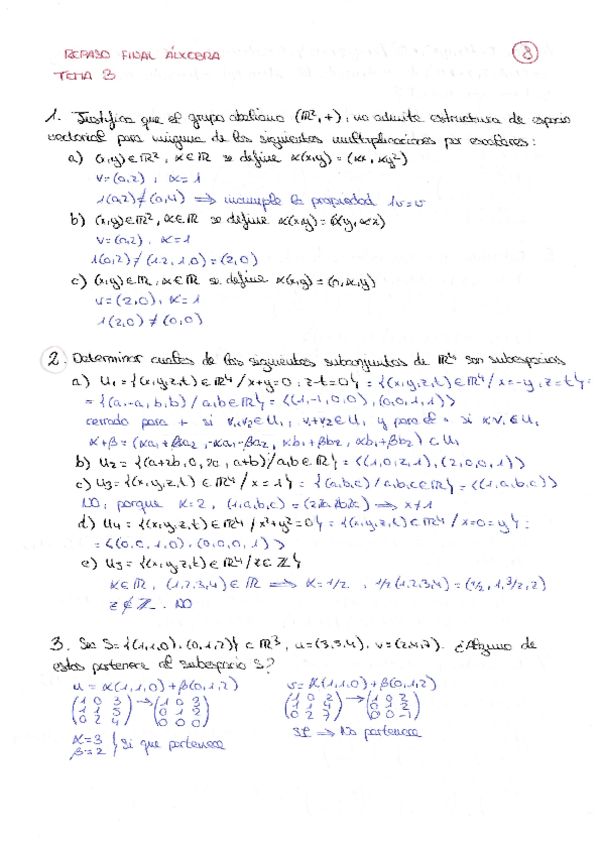 REPASO FINAL ÁLGEBRA
8
TEMA 3
1. Justifica que el grupo abeliano (ℝ², +), no admite estructura de espacio
vectorial para ninguna de las siguientes multiplicaciones por escalares:
a) (x,y) ∈ ℝ², α ∈ ℝ se define α(x,y) = (αx, αy²)
v=(0,2), α=1
1(0,2) ≠ (0,4) ⟹ incumple la propiedad 1v=v
b) (x,y) ∈ ℝ², α ∈ ℝ se define α(x,y) = (αy, αx)
v=(0,2), α=1
1(0,2) ≠ (1·2, 1·0) = (2,0)
c) (x,y) ∈ ℝ, α ∈ ℝ se define α(x,y) = (0, αy)
v=(2,0), α=1
1(2,0) ≠ (0,0)
2. Determinar cuales de los siguientes subconjuntos de ℝ⁴ son subespacios
a) U₁ = {(x,y,z,t) ∈ ℝ⁴ / x+y=0, z-t=0} = {(x,y,z,t) ∈ ℝ⁴ / x=-y, z=t} =
= {(a,-a,b,b) / a,b ∈ ℝ} = <(1,-1,0,0), (0,0,1,1)>
cerrado para + si v₁,v₂ ∈ U₁, v₁+v₂ ∈ U₁ y para el · si αv₁ ∈ U₁
α+β = (αa₁+βa₂, -αa₁-βa₂, αb₁+βb₂, αb₁+βb₂) ⊂ U₁
b) U₂ = {(a+2b, 0, 2a, a+b) / a,b ∈ ℝ} = <(1,0,2,1), (2,0,0,1)>
c) U₃ = {(x,y,z,t) ∈ ℝ⁴ / x=1} = {(a,b,c) / a,b,c ∈ ℝ} = <(1,a,b,c)>
NO, porque α=2, (1,a,b,c) = ⟹ x≠1
d) U₄ = {(x,y,z,t) ∈ ℝ⁴ / x²+y²=0} = {(x,y,z,t) ∈ ℝ⁴ / x=0=y} =
= <(0,0,1,0), (0,0,0,1)>
e) U₅ = {(x,y,z,t) ∈ ℝ⁴ / z ∈ ℤ}
α ∈ ℝ, (1,2,3,4) ∈ ℝ ⟹ α=1/2, 1/2(1,2,3,4) = (1/2, 1, 3/2, 2)
z ∉ ℤ. NO
3. Sea S = {(1,1,0), (0,1,2)} ⊂ ℝ³, u=(3,3,4), v=(2,4,7). ¿Alguno de
estos pertenece al subespacio S?
u = α(1,1,0) + β(0,1,2) v = α(1,1,0) + β(0,1,2)
(1 0 3) → (1 0 3) (1 0 2) → (1 0 2)
(1 1 5) (0 1 3) (1 1 4) (0 1 2)
(0 2 4) (0 0 0) (0 2 7) (0 0 -1)
α=3 } Si que pertenece SI ⟹ No pertenece
β=2